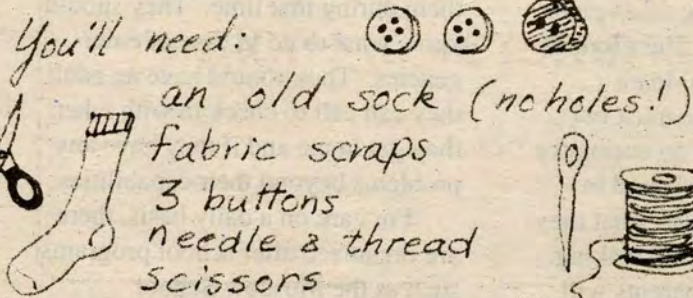 You'll need:
an old sock (no holes!)
fabric scraps
3 buttons
needle & thread
scissors